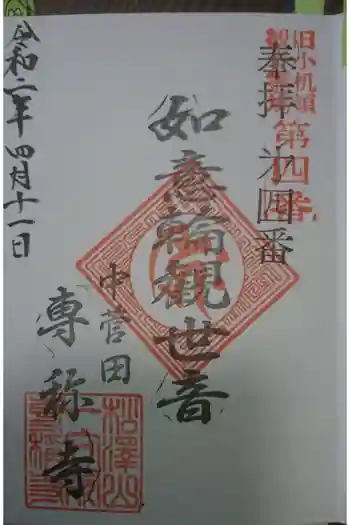 旧小机領
第四番
奉拝 第四番
如意輪観世音
中菅田
専称寺
令和二年四月十一日